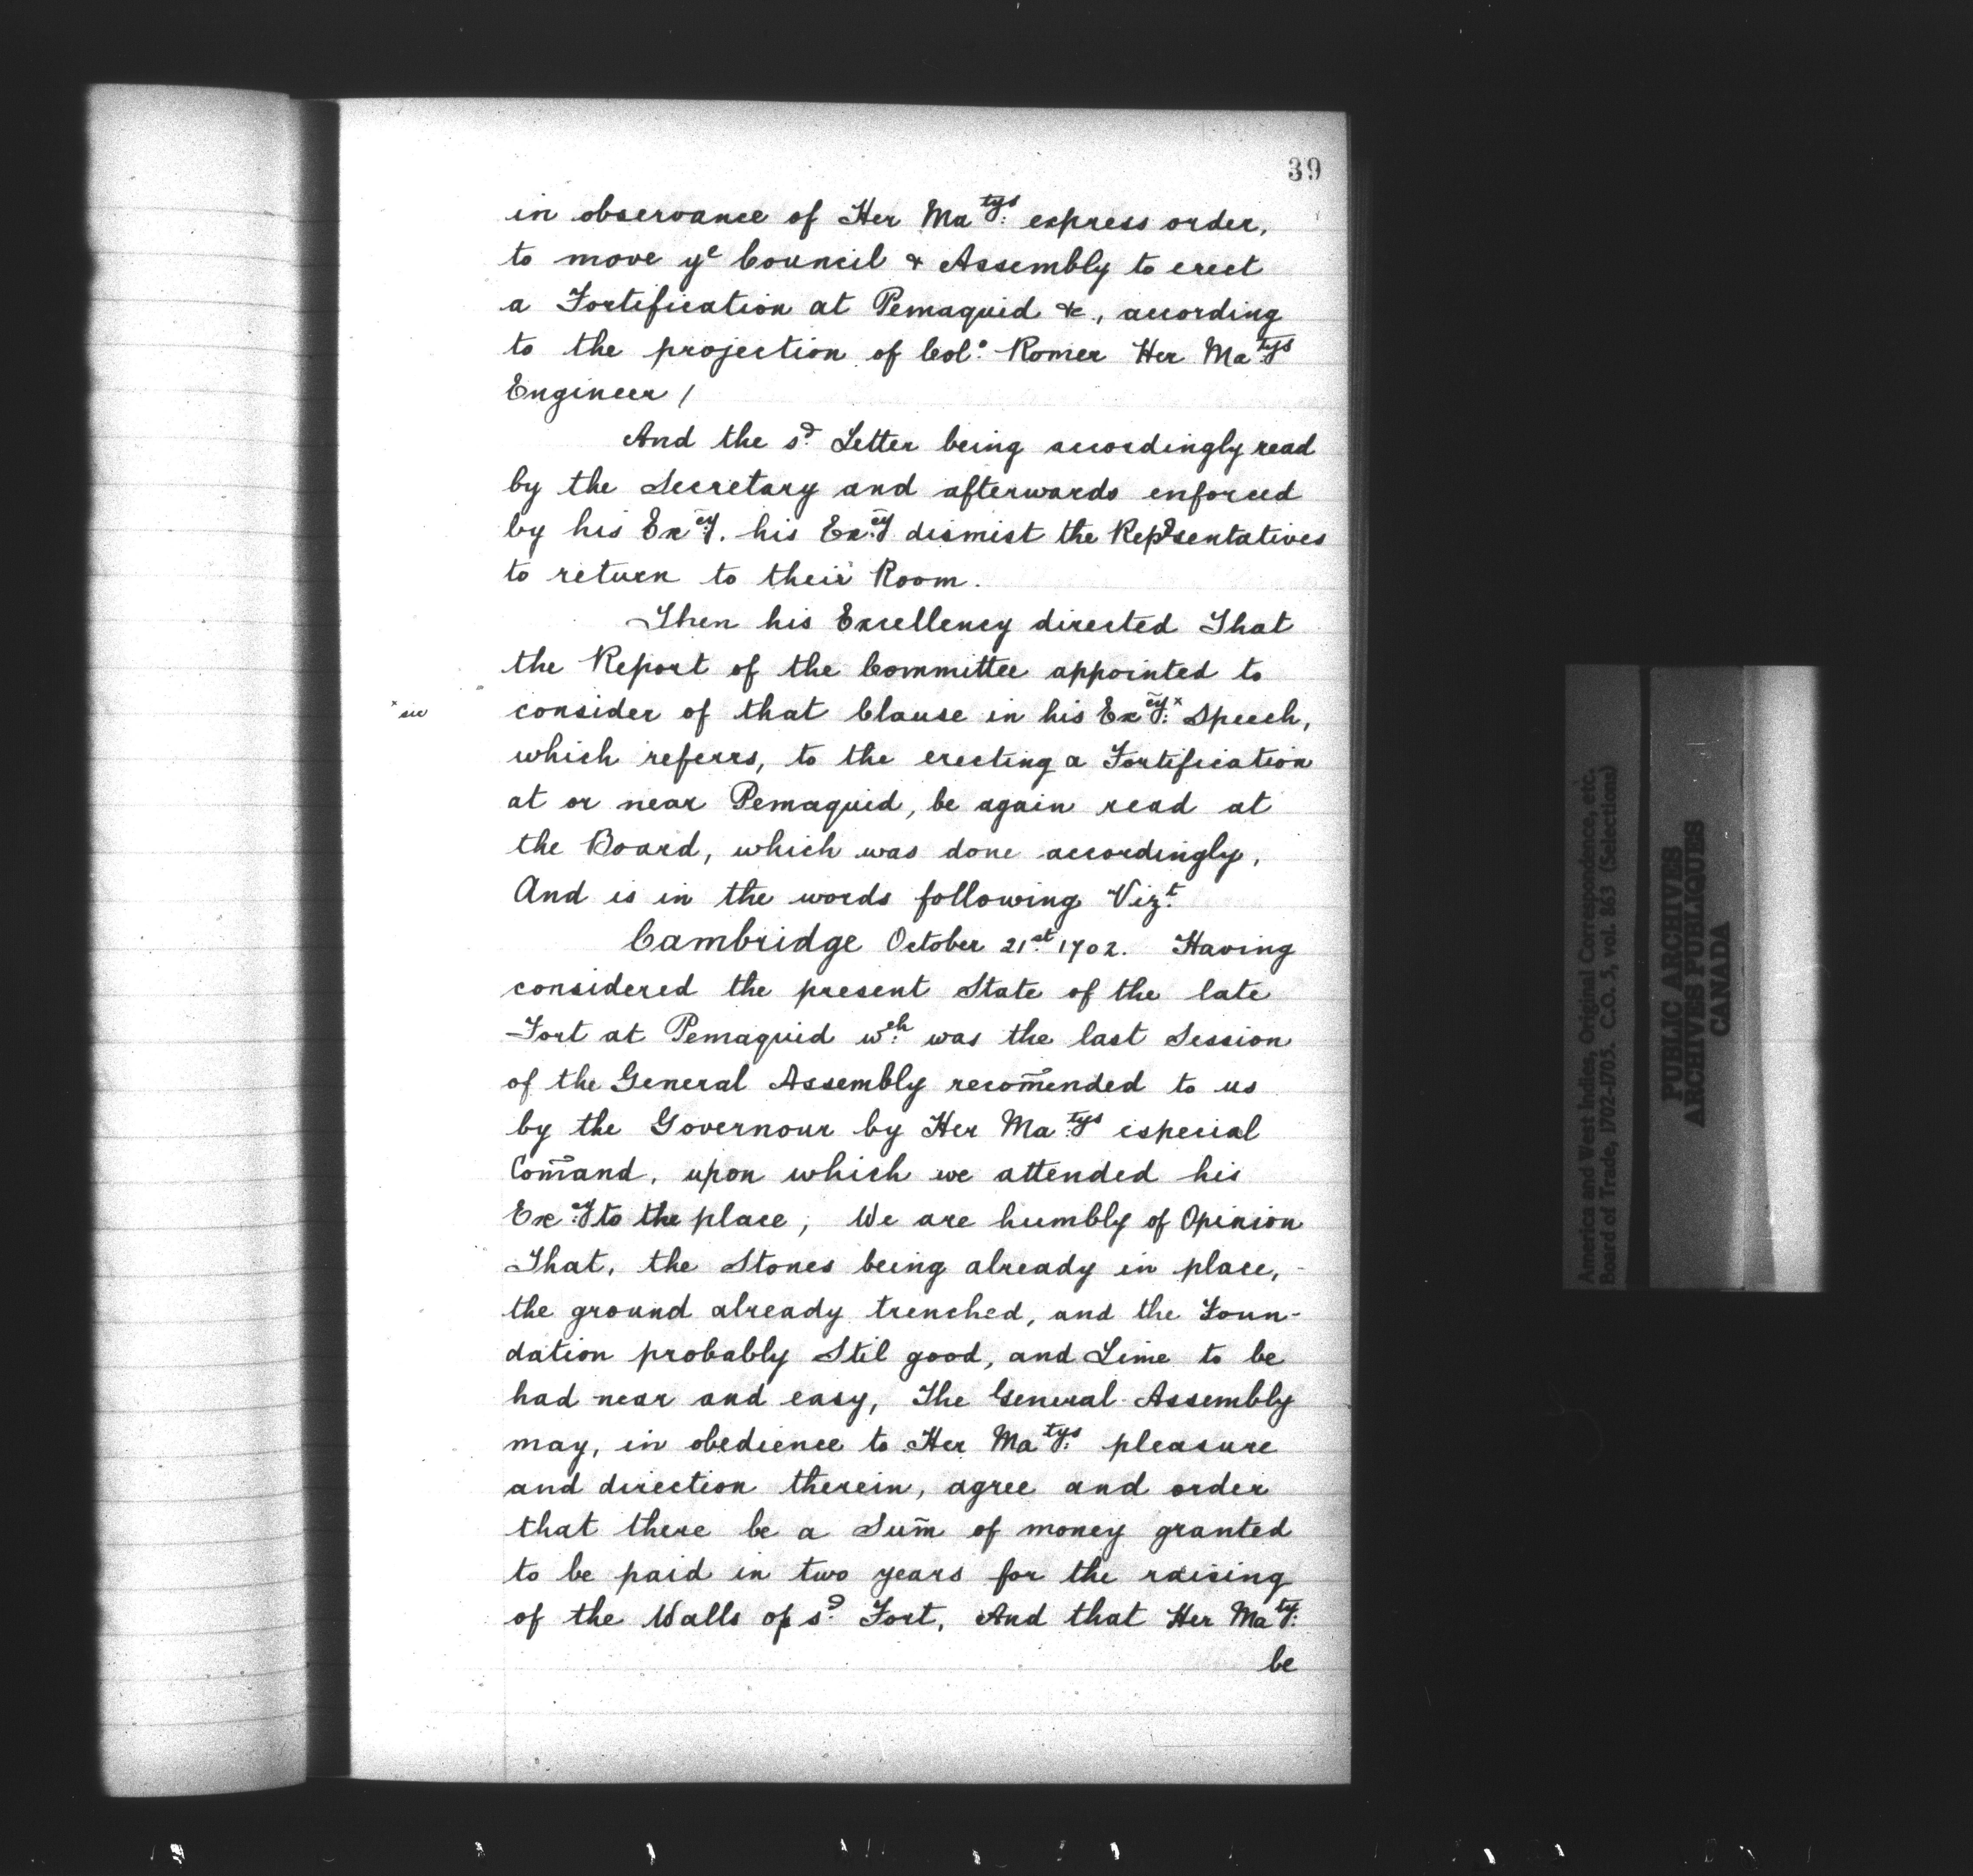 39
in observance of Her Ma:tys express order,
to move ye Council & Assembly to erect
a Fortification at Pemaquid &c, according
to the projection of Colo. Romer Her Ma:tys
Engineer /
And the sd. Letter being accordingly read
by the Secretary and afterwards enforced
by his Ex:cy. his Ex:cy dismist the Repsentatives
to return to their Room.
Then his Excellency directed That
the Report of the Committee appointed to
x sic
consider of that Clause in his Ex:cy x Speech,
which referrs, to the erecting a Fortification
at or near Pemaquid, be again read at
the Board, which was done accordingly,
And is in the words following Vizt.
Cambridge October 21st. 1702. Having
considered the present State of the late
Fort at Pemaquid wch. was the last Session
of the General Assembly recom̃ended to us
by the Governour by Her Ma:tys especial
Com̃and, upon which we attended his
Ex:cy to the place, We are humbly of Opinion
That, the Stones being already in place, -
the ground already trenched, and the Foun-
dation probably Stil good, and Lime to be
had near and easy, The General Assembly
may, in obedience to Her Ma:tys pleasure
and direction therein, agree and order
that there be a Sum̃ of money granted
to be paid in two years for the raising
of the Walls of sd. Fort, And that Her Ma:ty
be
America and West Indies, Original Correspondence, etc.
Board of Trade, 1702-1705. C.O. 5, vol. 863 (Selections)
PUBLIC ARCHIVES
ARCHIVES PUBLIQUES
CANADA